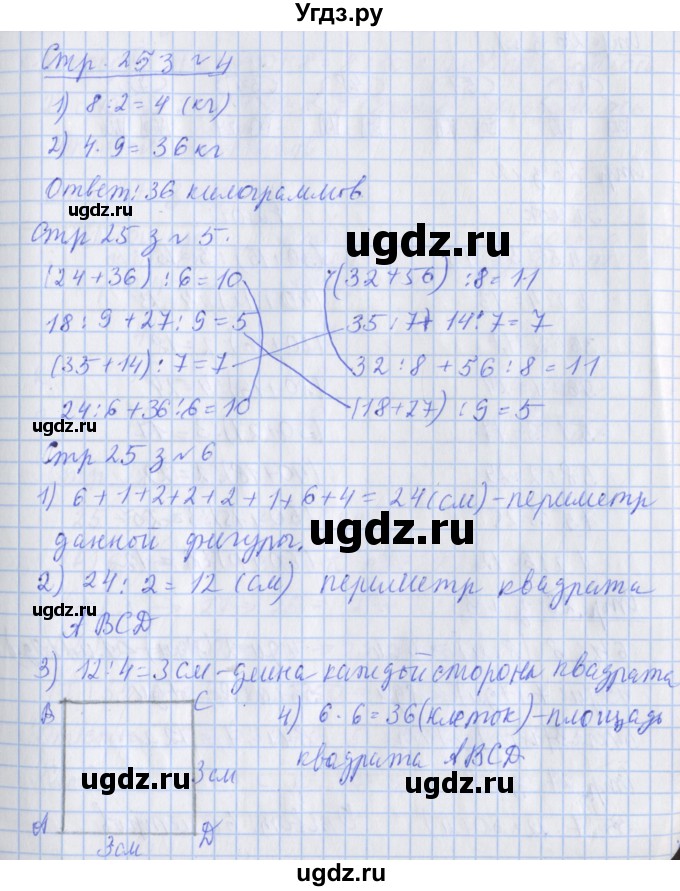 Угдз.ру
Стр. 25 з ~ 4
1) 8 : 2 = 4 (кг)
2) 4 · 9 = 36 кг
Ответ: 36 килограммов
ugdz.ru
ugdz.ru
Стр 25 з ~ 5.
(24 + 36) : 6 = 10
(32 + 56) : 8 = 11
18 : 9 + 27 : 9 = 5
35 : 7 + 14 : 7 = 7
(35 + 14) : 7 = 7
32 : 8 + 56 : 8 = 11
24 : 6 + 36 : 6 = 10
(18 + 27) : 9 = 5
ugdz.ru
Стр 25 з ~ 6
ugdz.ru
1) 6 + 1 + 2 + 2 + 2 + 1 + 6 + 4 = 24 (см) - периметр
данной фигуры.
ugdz.ru
2) 24 : 2 = 12 (см) периметр квадрата
ugdz.ru
ABCD
3) 12 : 4 = 3 см - длина каждой сторона квадрата
B
C
4) 6 · 6 = 36 (клеток) - площадь
квадрата ABCD
3 см
ugdz.ru
ugdz.ru
A
D
3 см
ugdz.ru